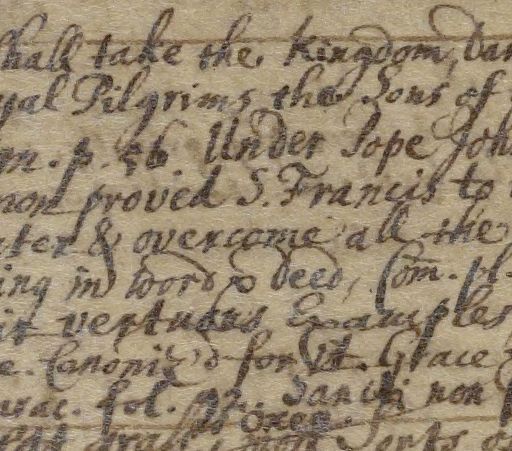 shall take the Kingdom, Dan
yal Pilgrims the Sons of
m. p. 56 Under Pope John
mon proved S. Francis to
ater & overcome all the
ing in word & deed, Com. pl.
ir vertuous Examples
e. Canoniz'd for it. Grace
urac. fol. 92. Sancti non
Oxen.
Sorts